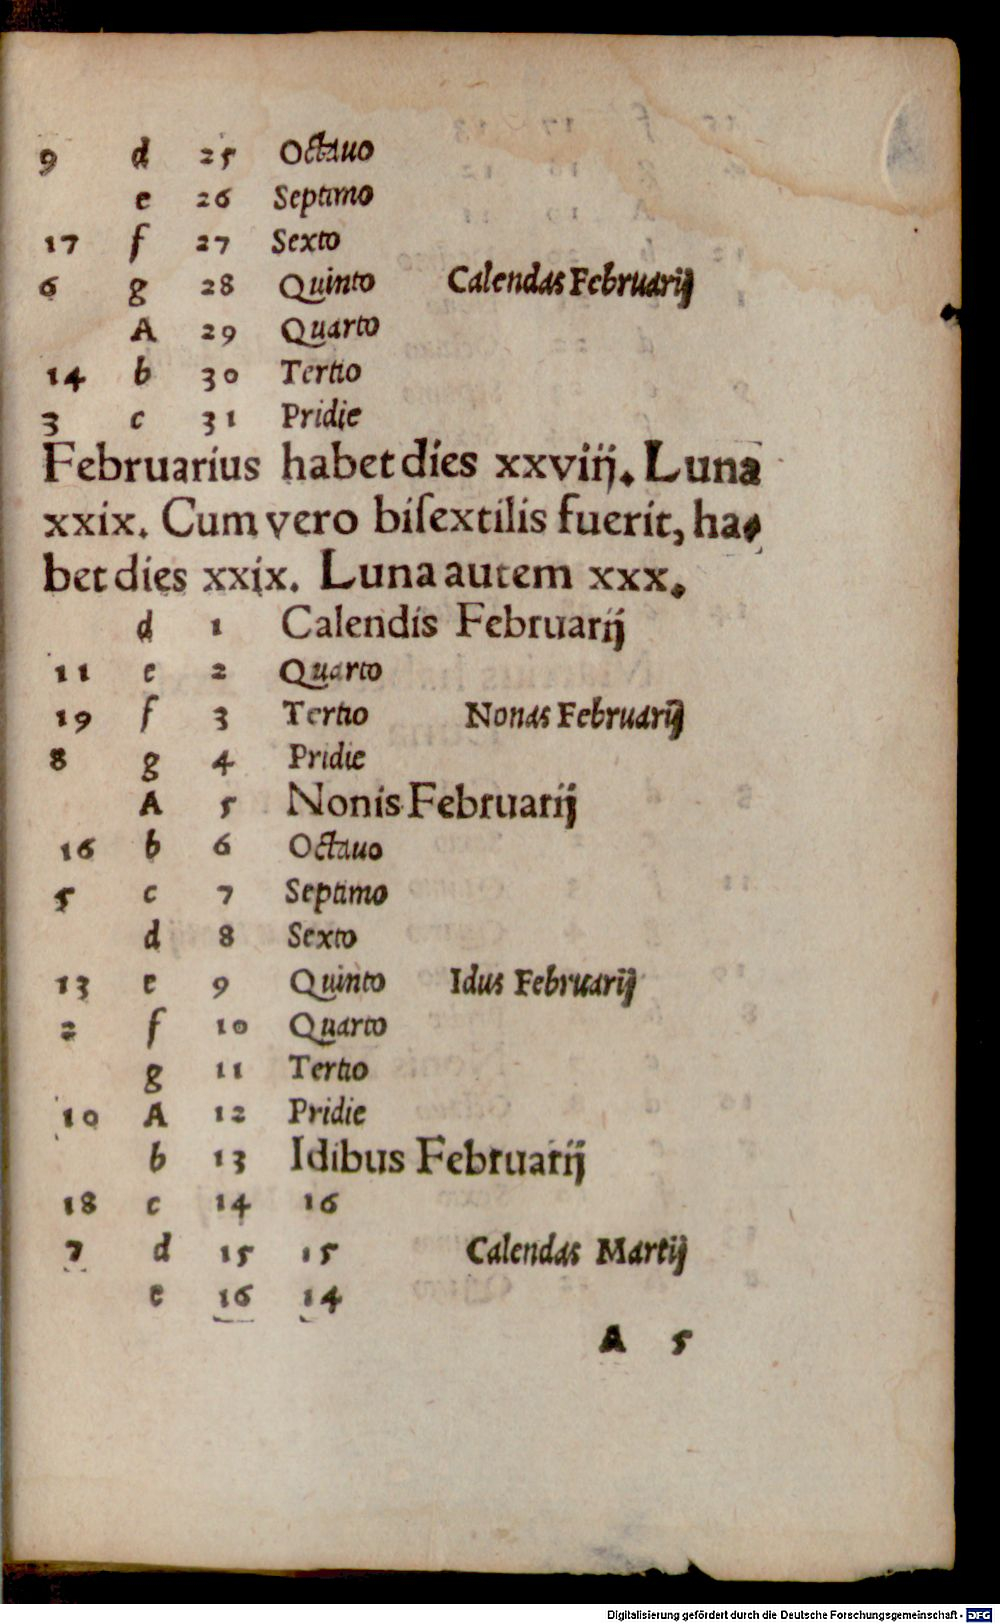 9 d 25 Octauo
e 26 Septimo
17 f 27 Sexto
6 g 28 Quinto Calendas Februarij
A 29 Quarto
14 b 30 Tertio
3 c 31 Pridie
Februarius habet dies xxviij. Luna
xxix. Cum vero biſextilis fuerit, ha-
bet dies xxix. Luna autem xxx.
d 1 Calendis Februarij
11 e 2 Quarto
19 f 3 Tertio Nonas Februarij
8 g 4 Pridie
A 5 Nonis Februarij
16 b 6 Octauo
5 c 7 Septimo
d 8 Sexto
13 e 9 Quinto Idus Februarij
2 f 10 Quarto
g 11 Tertio
10 A 12 Pridie
b 13 Idibus Februarij
18 c 14 16
7 d 15 15 Calendas Martij
e 16 14
A 5
Digitalisierung gefördert durch die Deutsche Forschungsgemeinschaft - DFG